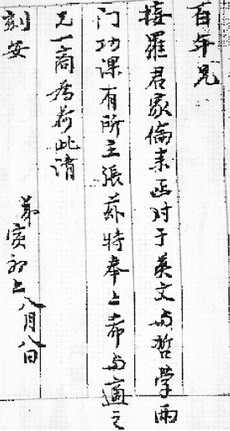 百年兄
接羅君家倫来函对于英文与哲學兩
门功课有所主張茲特奉上希与適之
兄一商為荷此请
刻安
弟寅初上八月八日